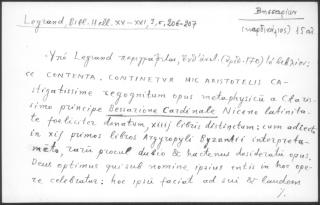 Legrand, Bibl. Hell. XV–XXI, 3, σ. 206-207
Βησσαρίων
(καρδινάλιος) 15 αἰ.
Ὑπὸ Legrand περιγράφεται,
ce CONTENTA. CONTINETUR HIC ARISTOTELIS CA-
stigatissime recognitum opus metaphysicũ a Claris-
simo principe Bessarione Cardinale Niceno latinita-
te foeliciter donatum, xiiij libris distinctum: cum adiecto
in xij primos libros Argyropyli Byzantii interpreta-
mẽto, rarũ procul dubio & hactenus desideratũ opus.
Deus optimus qui sub nomine ipsius entis in hoc ope-
re celebratur: hoc ipsũ faciat ad sui & laudem